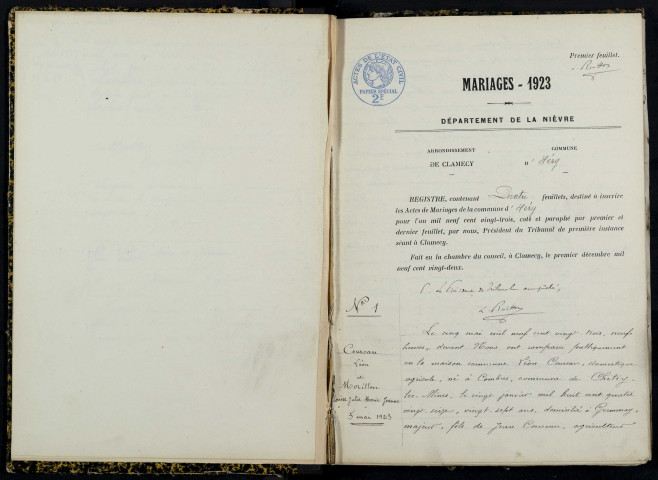 Premier feuillet.
ACTES DE L'ÉTAT CIVIL
PAPIER SPÉCIAL
2E
MARIAGES - 1923
DÉPARTEMENT DE LA NIÈVRE
ARRONDISSEMENT
COMMUNE
DE CLAMECY
d' Héry
REGISTRE, contenant quatre feuillets, destiné à inscrire
les Actes de Mariages de la commune d'Héry
pour l'an mil neuf cent vingt-trois, coté et paraphé par premier et
dernier feuillet, par nous, Président du Tribunal de première instance
séant à Clamecy.
Fait en la chambre du conseil, à Clamecy, le premier décembre mil
neuf cent vingt-deux.
N° 1
Léon
et
Morillon
5 mai 1923
Le cinq mai mil neuf cent vingt trois, neuf
heures, devant Nous ont comparu publiquement
en la maison commune Léon, domestique
agricole, né à Combres, commune de Chitry
les Mines, le vingt janvier mil huit cent quatre
vingt seize, vingt sept ans, domicilié à
majeur, fils de Jean, agriculteur